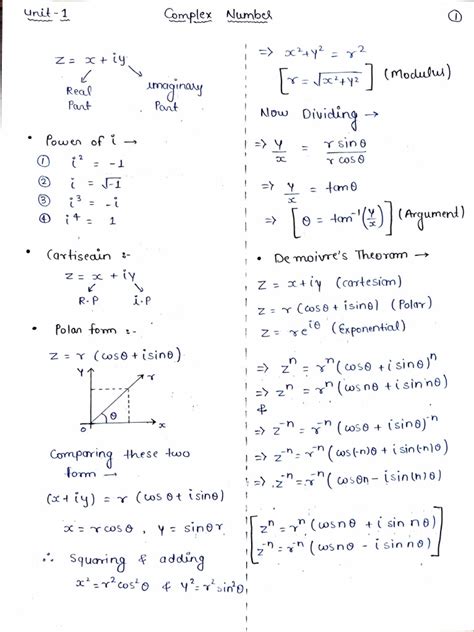 Unit-1
Complex Number
1
z = x + iy
Real Part
imaginary Part
• Power of i →
① i² = -1
② i = √-1
③ i³ = -i
④ i⁴ = 1
• Cartiseain :-
z = x + iy
R.P i.P
• Polan form :-
z = r (cosθ + isinθ)
Y r
θ
0 x
Comparing these two
form →
(x+iy) = r (cosθ + isinθ)
x = r cosθ , y = sinθr.
∴ Squaring & adding
x² = r²cos²θ & y² = r²sin²θ
⇒ x²+y² = r²
[r = √x²+y²] (Modulus)
Now Dividing →
⇒ y/x = r sinθ / r cosθ
⇒ y/x = tanθ
⇒ [θ = tan⁻¹(y/x)] (Argument)
• Demoivre's Theoram →
z = x + iy (cartesian)
z = r (cosθ + isinθ) (Polar)
z = re^iθ (Exponential)
⇒ zⁿ = rⁿ (cosθ + i sinθ)ⁿ
⇒ zⁿ = rⁿ (cosnθ + i sin nθ)
&
⇒ z⁻ⁿ = r⁻ⁿ (cosθ + i sinθ)⁻ⁿ
⇒ z⁻ⁿ = r⁻ⁿ (cos(-n)θ + i sin(-n)θ)
⇒ z⁻ⁿ = r⁻ⁿ (cosθn - i sin(n)θ)
[zⁿ = rⁿ (cosnθ + i sin nθ)
z⁻ⁿ = r⁻ⁿ (cosnθ - i sin nθ)]